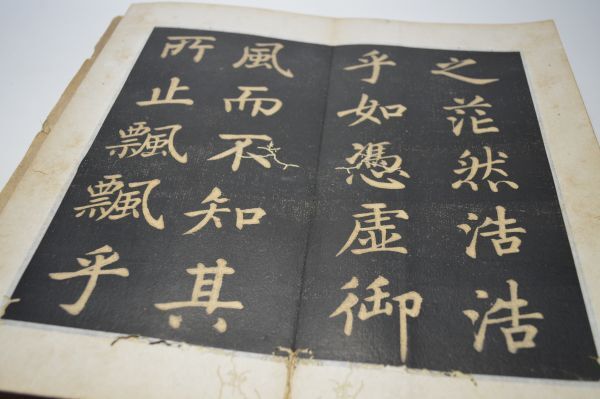 之茫然浩浩
乎如憑虛御
風而不知其
所止飄飄乎